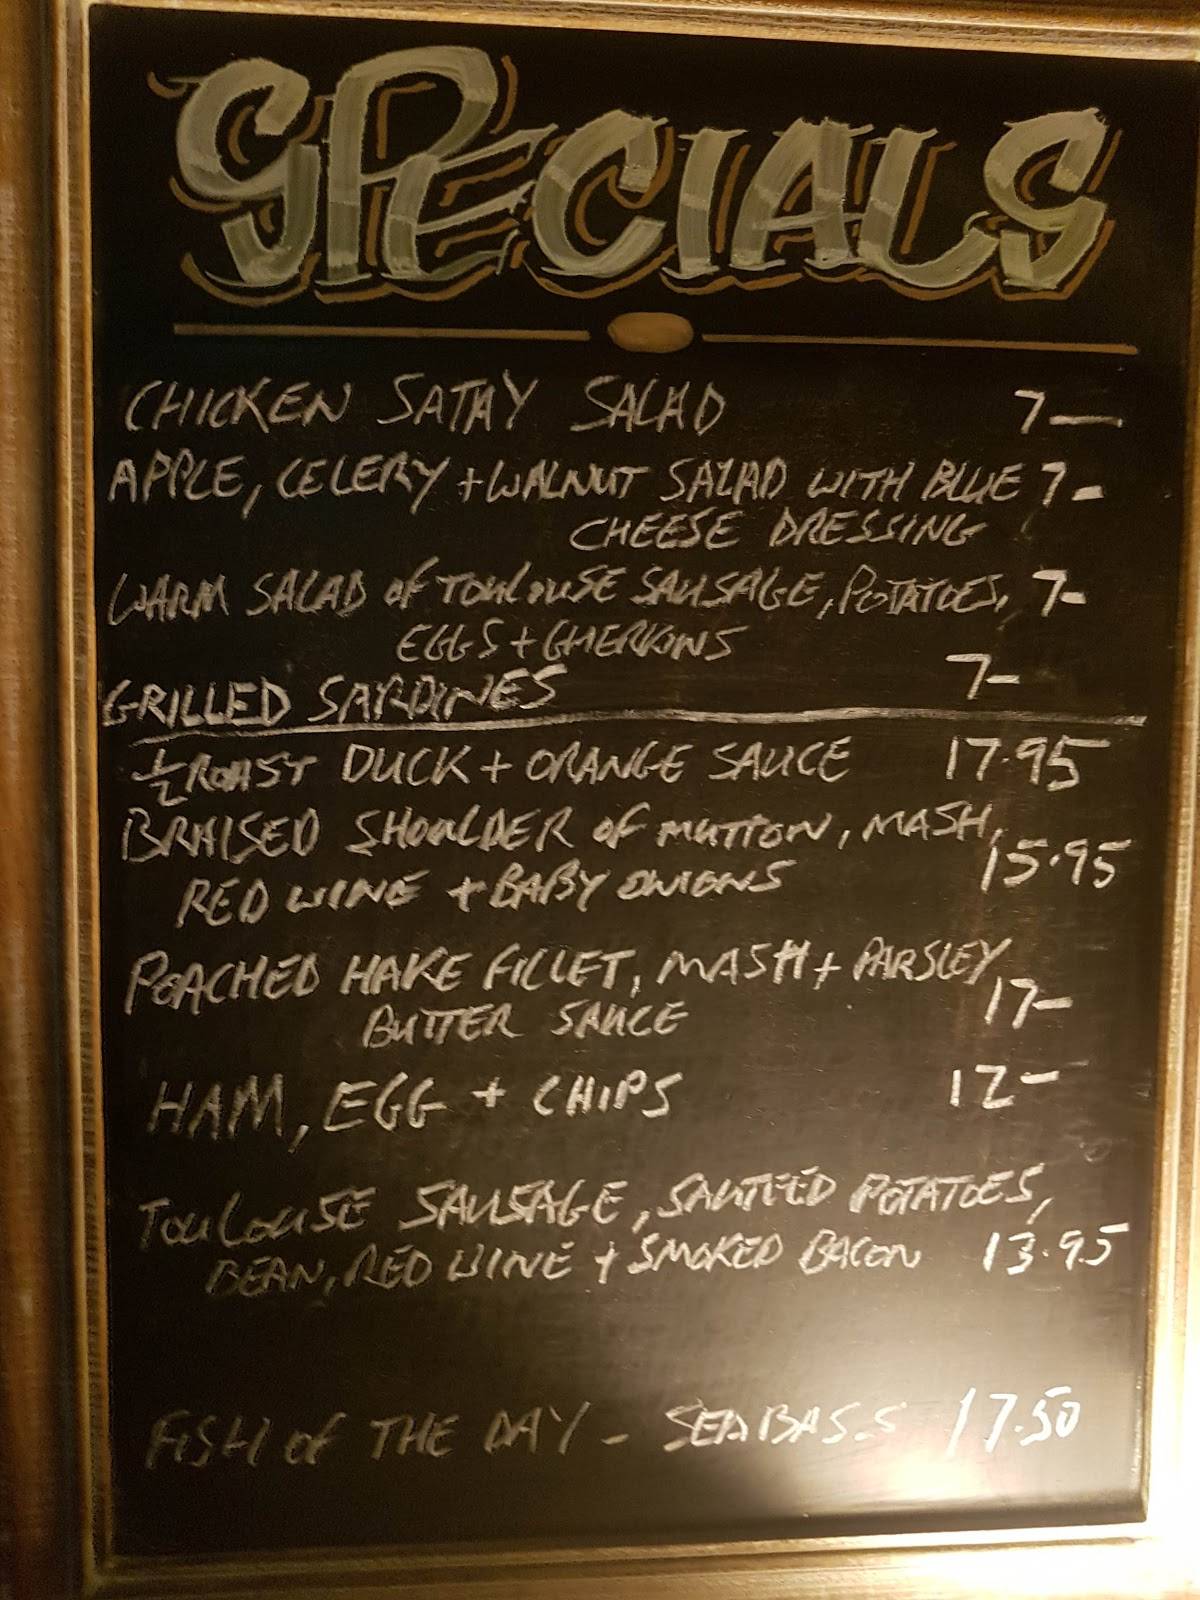 SPECIALS
CHICKEN SATAY SALAD 7—
APPLE, CELERY + WALNUT SALAD WITH BLUE 7-
CHEESE DRESSING
WARM SALAD OF TOULOUSE SAUSAGE, POTATOES, 7-
EGGS + GHERKINS
GRILLED SARDINES 7-
½ ROAST DUCK + ORANGE SAUCE 17.95
BRAISED SHOULDER OF MUTTON, MASH,
RED WINE + BABY ONIONS 15.95
POACHED HAKE FILLET, MASH + PARSLEY
BUTTER SAUCE 17-
HAM, EGG + CHIPS 12-
TOULOUSE SAUSAGE, SAUTEED POTATOES,
BEAN, RED WINE + SMOKED BACON 13.95
FISH OF THE DAY - SEABASS 17.50